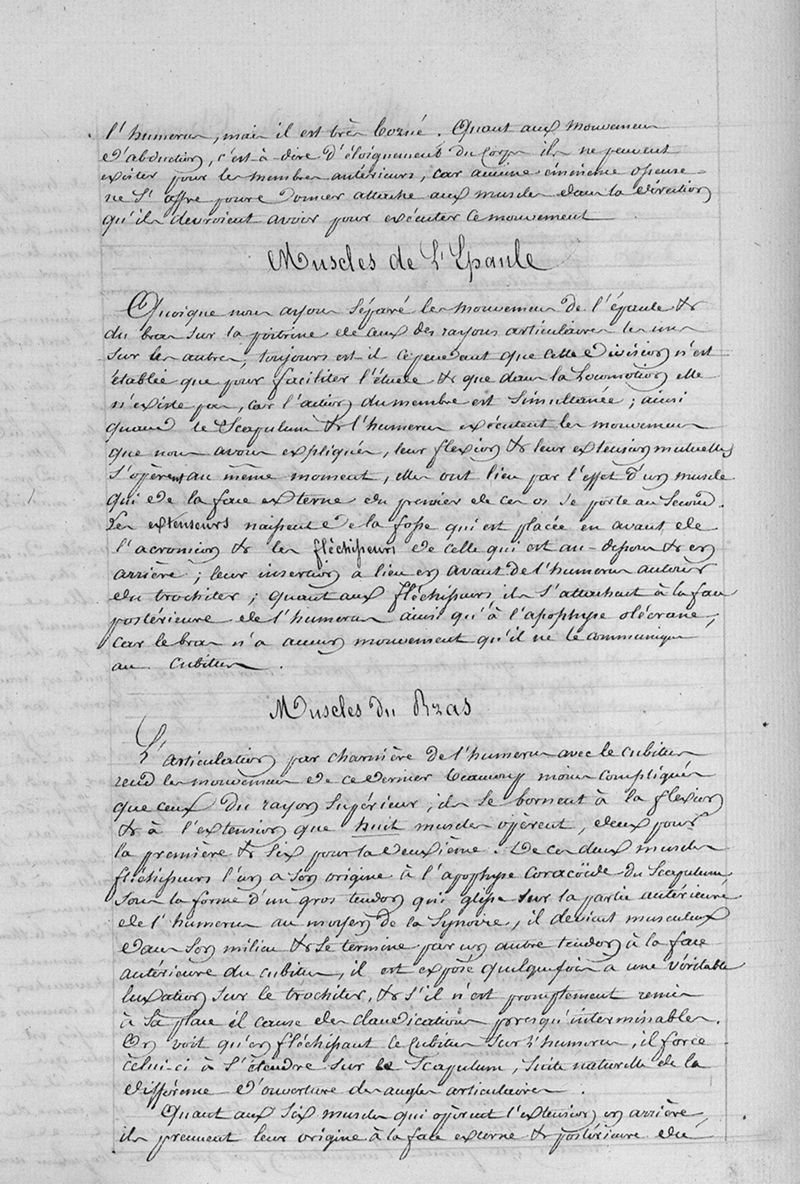 l'humerus, mais il est très borné. Quant aux mouvemens
d'abduction, c'est-à-dire d'éloignement du corps ils ne peuvent
exister pour les membres antérieurs, car aucune éminence osseuse
ne s'offre pour donner attache aux muscles dans la direction
qu'ils devroient avoir pour exécuter ce mouvement
Muscles de L'Epaule
Quoique nous ayons séparé les mouvemens de l'épaule &
du bras sur la poitrine de ceux des rayons articulaires les uns
sur les autres, toujours est il cependant que cette division n'est
établie que pour faciliter l'étude & que dans la Locomotion elle
n'existe pas, car l'action du membre est simultanée ; ainsi
quand le Scapulum & l'humerus exécutent les mouvemens
que nous avons expliqués, leur flexion & leur extension mutuelles
s'opèrent au même moment, elles ont lieu par l'effet d'un muscle
qui de la face externe du premier de ces os se porte au second.
Les extenseurs naissent de la fosse qui est placée en avant de
l'acromion & les fléchisseurs de celle qui est au-dessous & en
arrière ; leur insertion a lieu en avant de l'humerus autour
du trochiter ; quant aux fléchisseurs ils s'attachent à la face
postérieure de l'humerus ainsi qu'à l'apophyse olécrane,
car le bras n'a aucun mouvement qu'il ne le communique
au Cubitus.
Muscles du Bras
L'articulation par charnière de l'humerus avec le cubitus
rend les mouvemens de ce dernier beaucoup moins compliqués
que ceux du rayon supérieur ; ils se bornent à la flexion
& à l'extension que huit muscles opèrent, deux pour
la première & six pour la deuxième. De ces deux muscles
fléchisseurs l'un a son origine à l'apophyse coracöide du Scapulum
sous la forme d'un gros tendon qui glisse sur la partie antérieure
de l'humerus au moyen de la Synovie, il devient musculeux
dans son milieu & se termine par un autre tendon à la face
antérieure du cubitus, il est exposé quelquefois à une véritable
luxation sur le trochiter, & s'il n'est promptement remis
à sa place il cause des claudications presqu'interminables.
On voit qu'en fléchissant le Cubitus sur l'humerus, il force
celui-ci à s'étendre sur le Scapulum, suite naturelle de la
différence d'ouverture des angles articulaires.
Quant aux six muscles qui opèrent l'extension en arrière,
ils prennent leur origine à la face externe & postérieure du